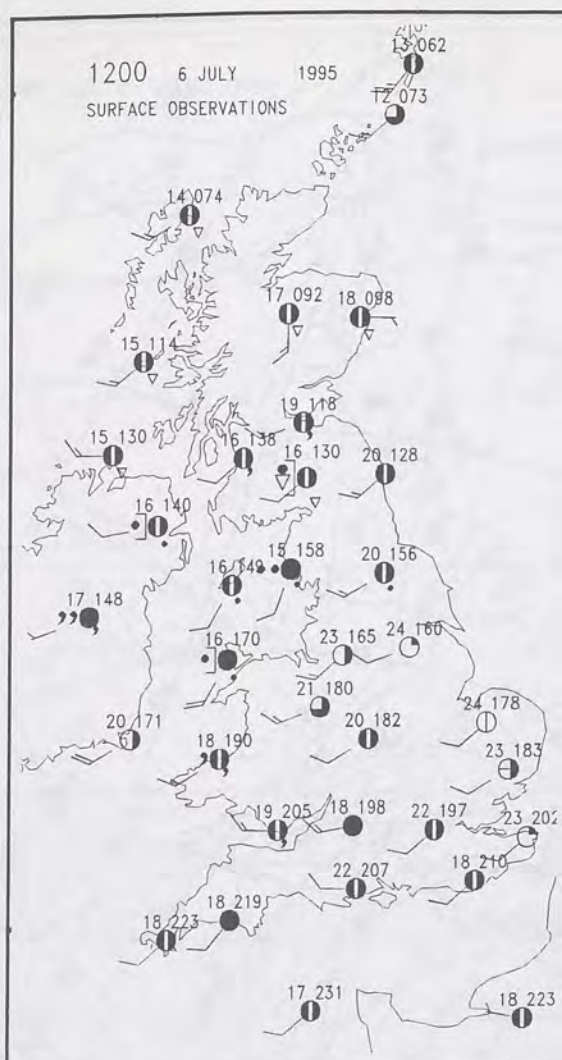 1200 6 JULY 1995
SURFACE OBSERVATIONS
13 062
12 073
14 074
17 092
18 098
15 114
19 118
15 130
16 138
16 130
20 128
16 140
15 158
16 149
20 156
17 148
16 170
23 165
24 160
21 180
24 178
20 171
20 182
18 190
23 183
19 205
18 198
22 197
23 202
22 207
18 210
18 219
18 223
17 231
18 223